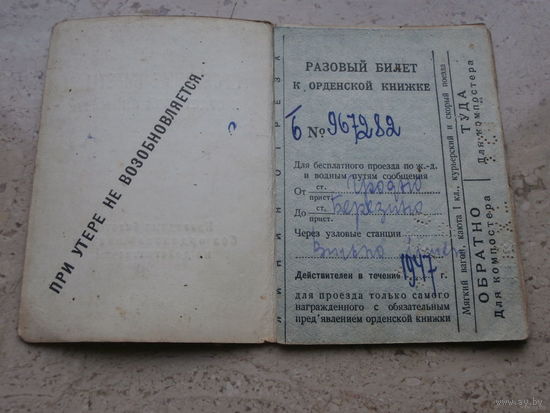 ПРИ УТЕРЕ НЕ ВОЗОБНОВЛЯЕТСЯ.
ЛИНИЯ ОТРЕЗА
РАЗОВЫЙ БИЛЕТ
К ОРДЕНСКОЙ КНИЖКЕ
Б № 967282
Для бесплатного проезда по ж.-д.
и водным путям сообщения
От ст. Гродно
прист.
До ст. Березино
прист.
Через узловые станции
Вильно
Действителен в течение 1947 г.
для проезда только самого
награжденного с обязательным
пред'явлением орденской книжки
Мягкий вагон, каюта 1 кл., курьерский и скорый поезда
ТУДА
Для компостера
ОБРАТНО
Для компостера
www.ay.by